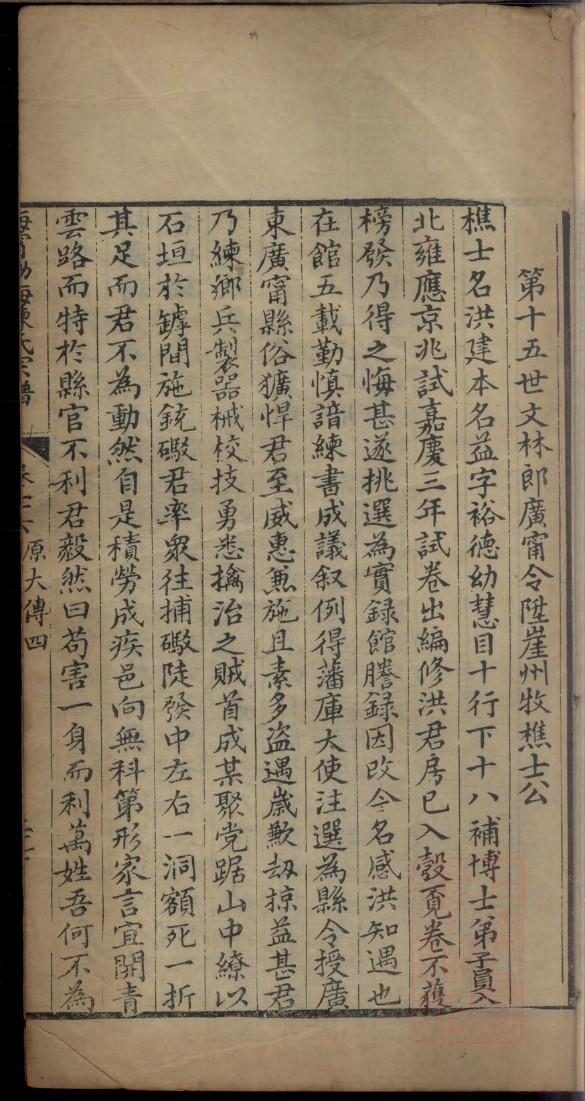 第十五世文林郎廣甯令陞崖州牧樵士公
樵士名洪建本名益字裕德幼慧目十行下十八補博士弟子員入
北雍應京兆試嘉慶三年試卷出編修洪君房已入彀覔卷不獲
榜發乃得之悔甚遂挑選為實録館謄録因改今名感洪知遇也
在館五載勤慎諳練書成議叙例得藩庫大使注選為縣令授廣
東廣甯縣俗獷悍君至威惠兼施且素多盗遇歲歉刼掠益甚君
乃練鄉兵製器械校技勇悉擒治之賊首成某聚党踞山中繚以
石垣於罅間施銃礮君率衆往捕礮陡發中左右一洞額死一折
其足而君不為動然自是積勞成疾邑向無科第形家言宜開青
雲路而特於縣官不利君毅然曰苟害一身而利萬姓吾何不為
氏宗譜
原大傳四